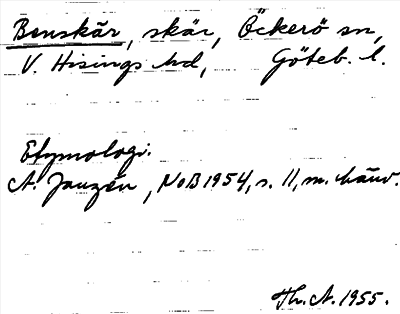 Benskär, skär, Öckerö sn,
V. Hisings hd, Göteb. l.
Etymologi:
A. Janzén, NoB 1954, s. 11, m. hänv.
Th. A. 1955.